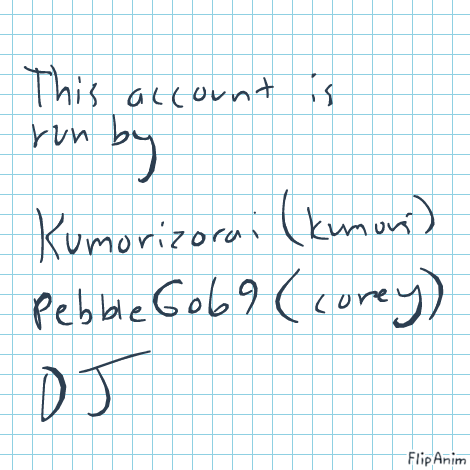 This account is
run by
Kumorizorai (kumori)
PebbleGob9 (corey)
DJ
FlipAnim